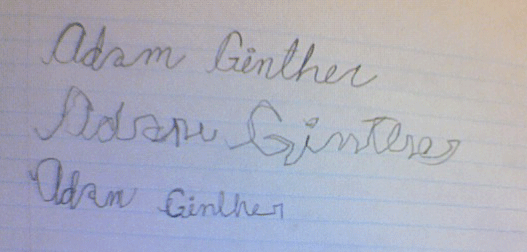 Adam Ginther
Adam Ginther
Adam Ginther